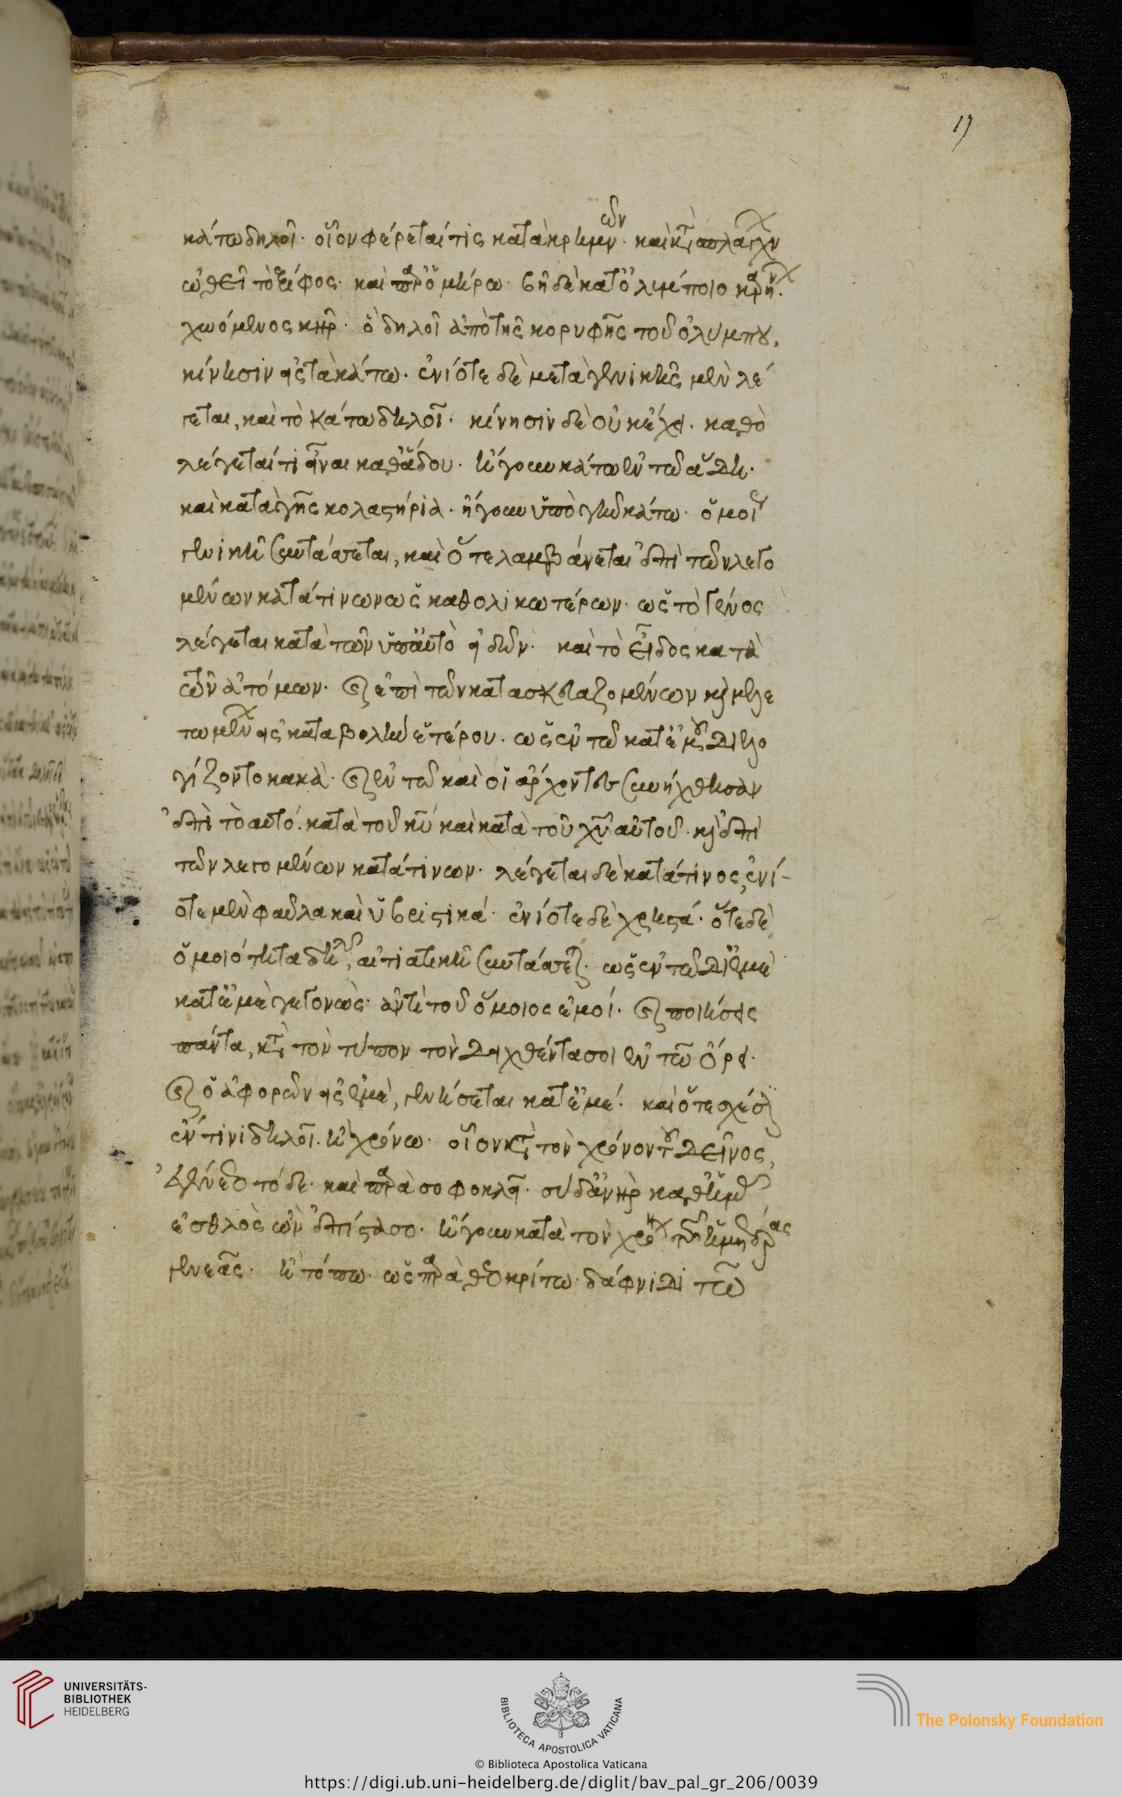 17
κάτω δηλοῖ· οἷον φέρεταί τις κατὰ κρημνῶν· καὶ κατὰ σπλάγχνων
ὠθεῖ τὸ ξίφος· καὶ παρ' ὁμήρω· βῆ δὲ κατ' ὀλύμποιο καρήνων
χωόμενος κῆρ· ὃ δηλοῖ ἀπὸ τῆς κορυφῆς τοῦ ὀλύμπου,
κίνησιν εἰς τὰ κάτω· ἐνίοτε δὲ μετὰ γενικῆς μὲν λέ
γεται, καὶ τὸ κάτω δηλοῖ· κίνησιν δὲ οὐκ ἔχει· καθὸ
λέγεταί τι εἶναι καθ' ἅδου· ἤγουν κάτω ἐν τῶ ἅδη·
καὶ κατὰ γῆς κολαστήρια· ἤγουν ὑπὸ γῆν κάτω· ὅμοι
γενικῆ συντάσσεται, καὶ ὅτε λαμβάνεται ἐπὶ τῶν λεγο
μένων κατά τινων ὡς καθολικωτέρων· ὡς τὸ γένος
λέγεται κατὰ τῶν ὑπ' αὐτὸ εἰδῶν· καὶ τὸ εἶδος κατὰ
τῶν ἀτόμων· καὶ ἐπὶ τῶν κατασκευαζομένων καὶ μελε
τωμένων εἰς καταβολὴν ἑτέρου· ὡς ἐν τῶ κατ' ἐμοῦ διελο
γίζοντο κακὰ· καὶ ἐν τῶ καὶ οἱ ἄρχοντες συνήχθησαν
ἐπὶ τὸ αὐτό· κατὰ τοῦ κυ καὶ κατὰ τοῦ χυ αὐτοῦ· καὶ ἐπὶ
τῶν λεγομένων κατά τινων· λέγεται δὲ κατά τινος, ἐνί-
οτε μὲν φαῦλα καὶ ὑβριστικά· ἐνίοτε δὲ χρηστά· ὅτε δὲ
ὁμοιότητα δηλοῖ, αἰτιατικῆ συντάσσεται· ὡς ἐν τῶ
κατ' ἐμὲ γεγονὼς· ἀντὶ τοῦ ὅμοιος ἐμοί· καὶ ποιήσεις
πάντα, κατὰ τὸν τύπον τὸν δειχθέντα σοι ἐν τῶ ὄρει·
καὶ ὁ ἀφορῶν εἰς ἐμὲ, γενήσεται κατ' ἐμέ· καὶ ὅτε σχέσιν
ἔν τινι δηλοῖ· ἢ χρόνω· οἷον κατὰ τὸν χρόνον τοῦ δεῖνος,
ἐγένετο τόδε· καὶ παρὰ σοφοκλεῖ· σὺ δ' ἀνὴρ καθ' ἡμᾶς
ἐσθλὸς ὢν ἐπίστασο· ἤγουν κατὰ τὸν χρόνον τῆς ἡμετέρας
γενεᾶς· ἢ τόπω· ὡς παρὰ θεοκρίτω· δάφνιδι τῶ
UNIVERSITÄTS-
BIBLIOTHEK
HEIDELBERG
BIBLIOTECA APOSTOLICA VATICANA
The Polonsky Foundation
© Biblioteca Apostolica Vaticana
https://digi.ub.uni-heidelberg.de/diglit/bav_pal_gr_206/0039